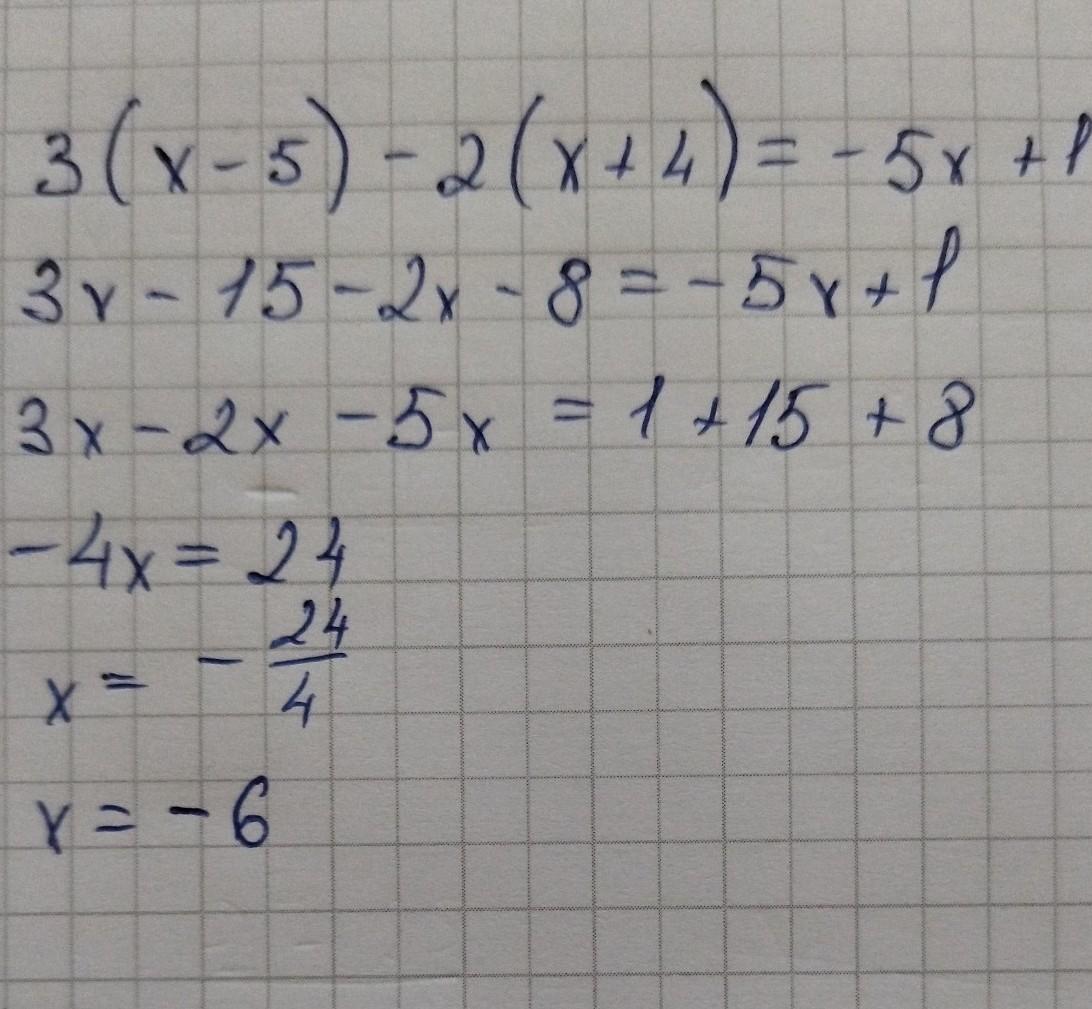 3(x-5)-2(x+4)=-5x+1
3x-15-2x-8=-5x+1
3x-2x-5x=1+15+8
-4x=24
x=-24/4
x=-6